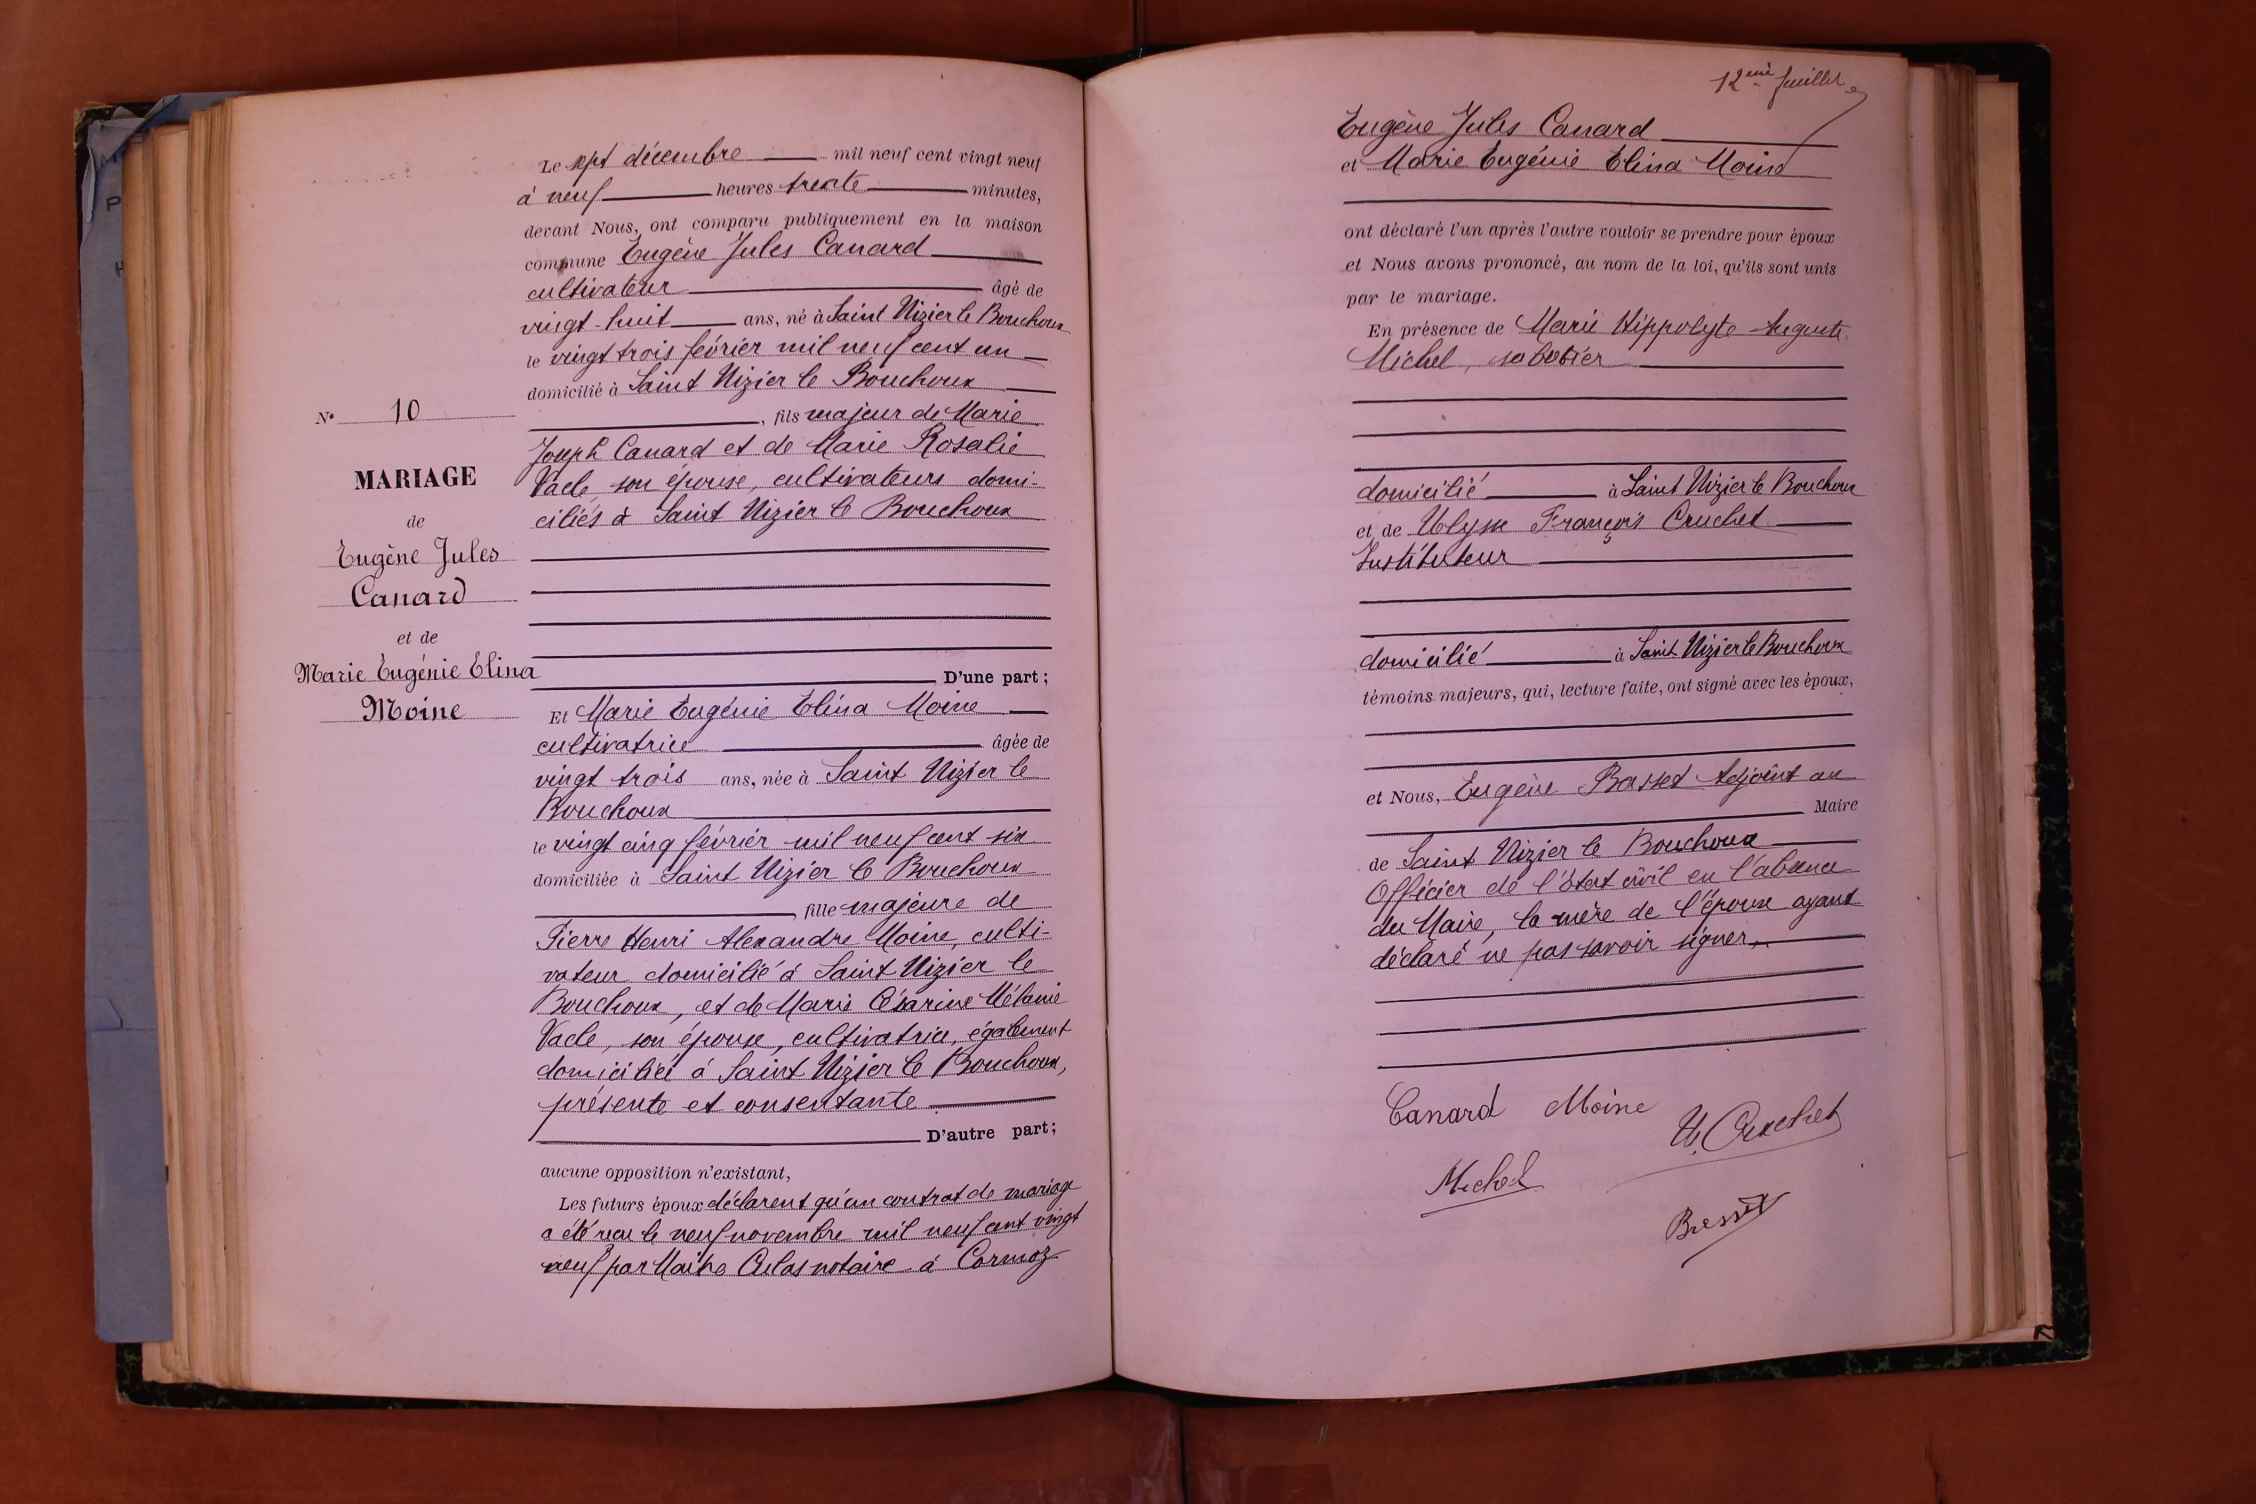 N° 10
MARIAGE
de
Eugène Jules
Canard
et de
Marie Eugénie Elina
Moine
Le sept décembre mil neuf cent vingt neuf
à neuf heures trente minutes,
devant Nous, ont comparu publiquement en la maison
commune Eugène Jules Canard
cultivateur âgé de
vingt-huit ans, né à Saint Nizier le Bouchoux
le vingt trois février mil neuf cent un
domicilié à Saint Nizier le Bouchoux
, fils majeur de Marie
Joseph Canard et de Marie Rosalie
Vacle son épouse, cultivateurs domi-
ciliés à Saint Nizier le Bouchoux
D'une part ;
Et Marie Eugénie Elina Moine
cultivatrice âgée de
vingt trois ans, née à Saint Nizier le
Bouchoux
le vingt cinq février mil neuf cent six
domiciliée à Saint Nizier le Bouchoux
, fille majeure de
Pierre Henri Alexandre Moine, culti-
vateur domicilié à Saint Nizier le
Bouchoux, et de Marie Césarine Mélanie
Vacle, son épouse, cultivatrice, également
domiciliée à Saint Nizier le Bouchoux,
présente et consentante
D'autre part ;
aucune opposition n'existant,
Les futurs époux déclarent qu'un contrat de mariage
a été reçu le neuf novembre mil neuf cent vingt
neuf par Maître Culas notaire à Cormoz
12eme feuillet
Eugène Jules Canard
et Marie Eugénie Elina Moine
ont déclaré l'un après l'autre vouloir se prendre pour époux
et Nous avons prononcé, au nom de la loi, qu'ils sont unis
par le mariage.
En présence de Marie Hippolyte Auguste
Michel, sabotier
domicilié à Saint Nizier le Bouchoux
et de Ulysse François Cruchet
Instituteur
domicilié à Saint Nizier le Bouchoux
témoins majeurs, qui, lecture faite, ont signé avec les époux,
et Nous, Eugène Basset Adjoint au
Maire
de Saint Nizier le Bouchoux
Officier de l'Etat civil en l'absence
du Maire, la mère de l'épouse ayant
déclaré ne pas savoir signer.
Canard Moine
U. Cruchet
Michel